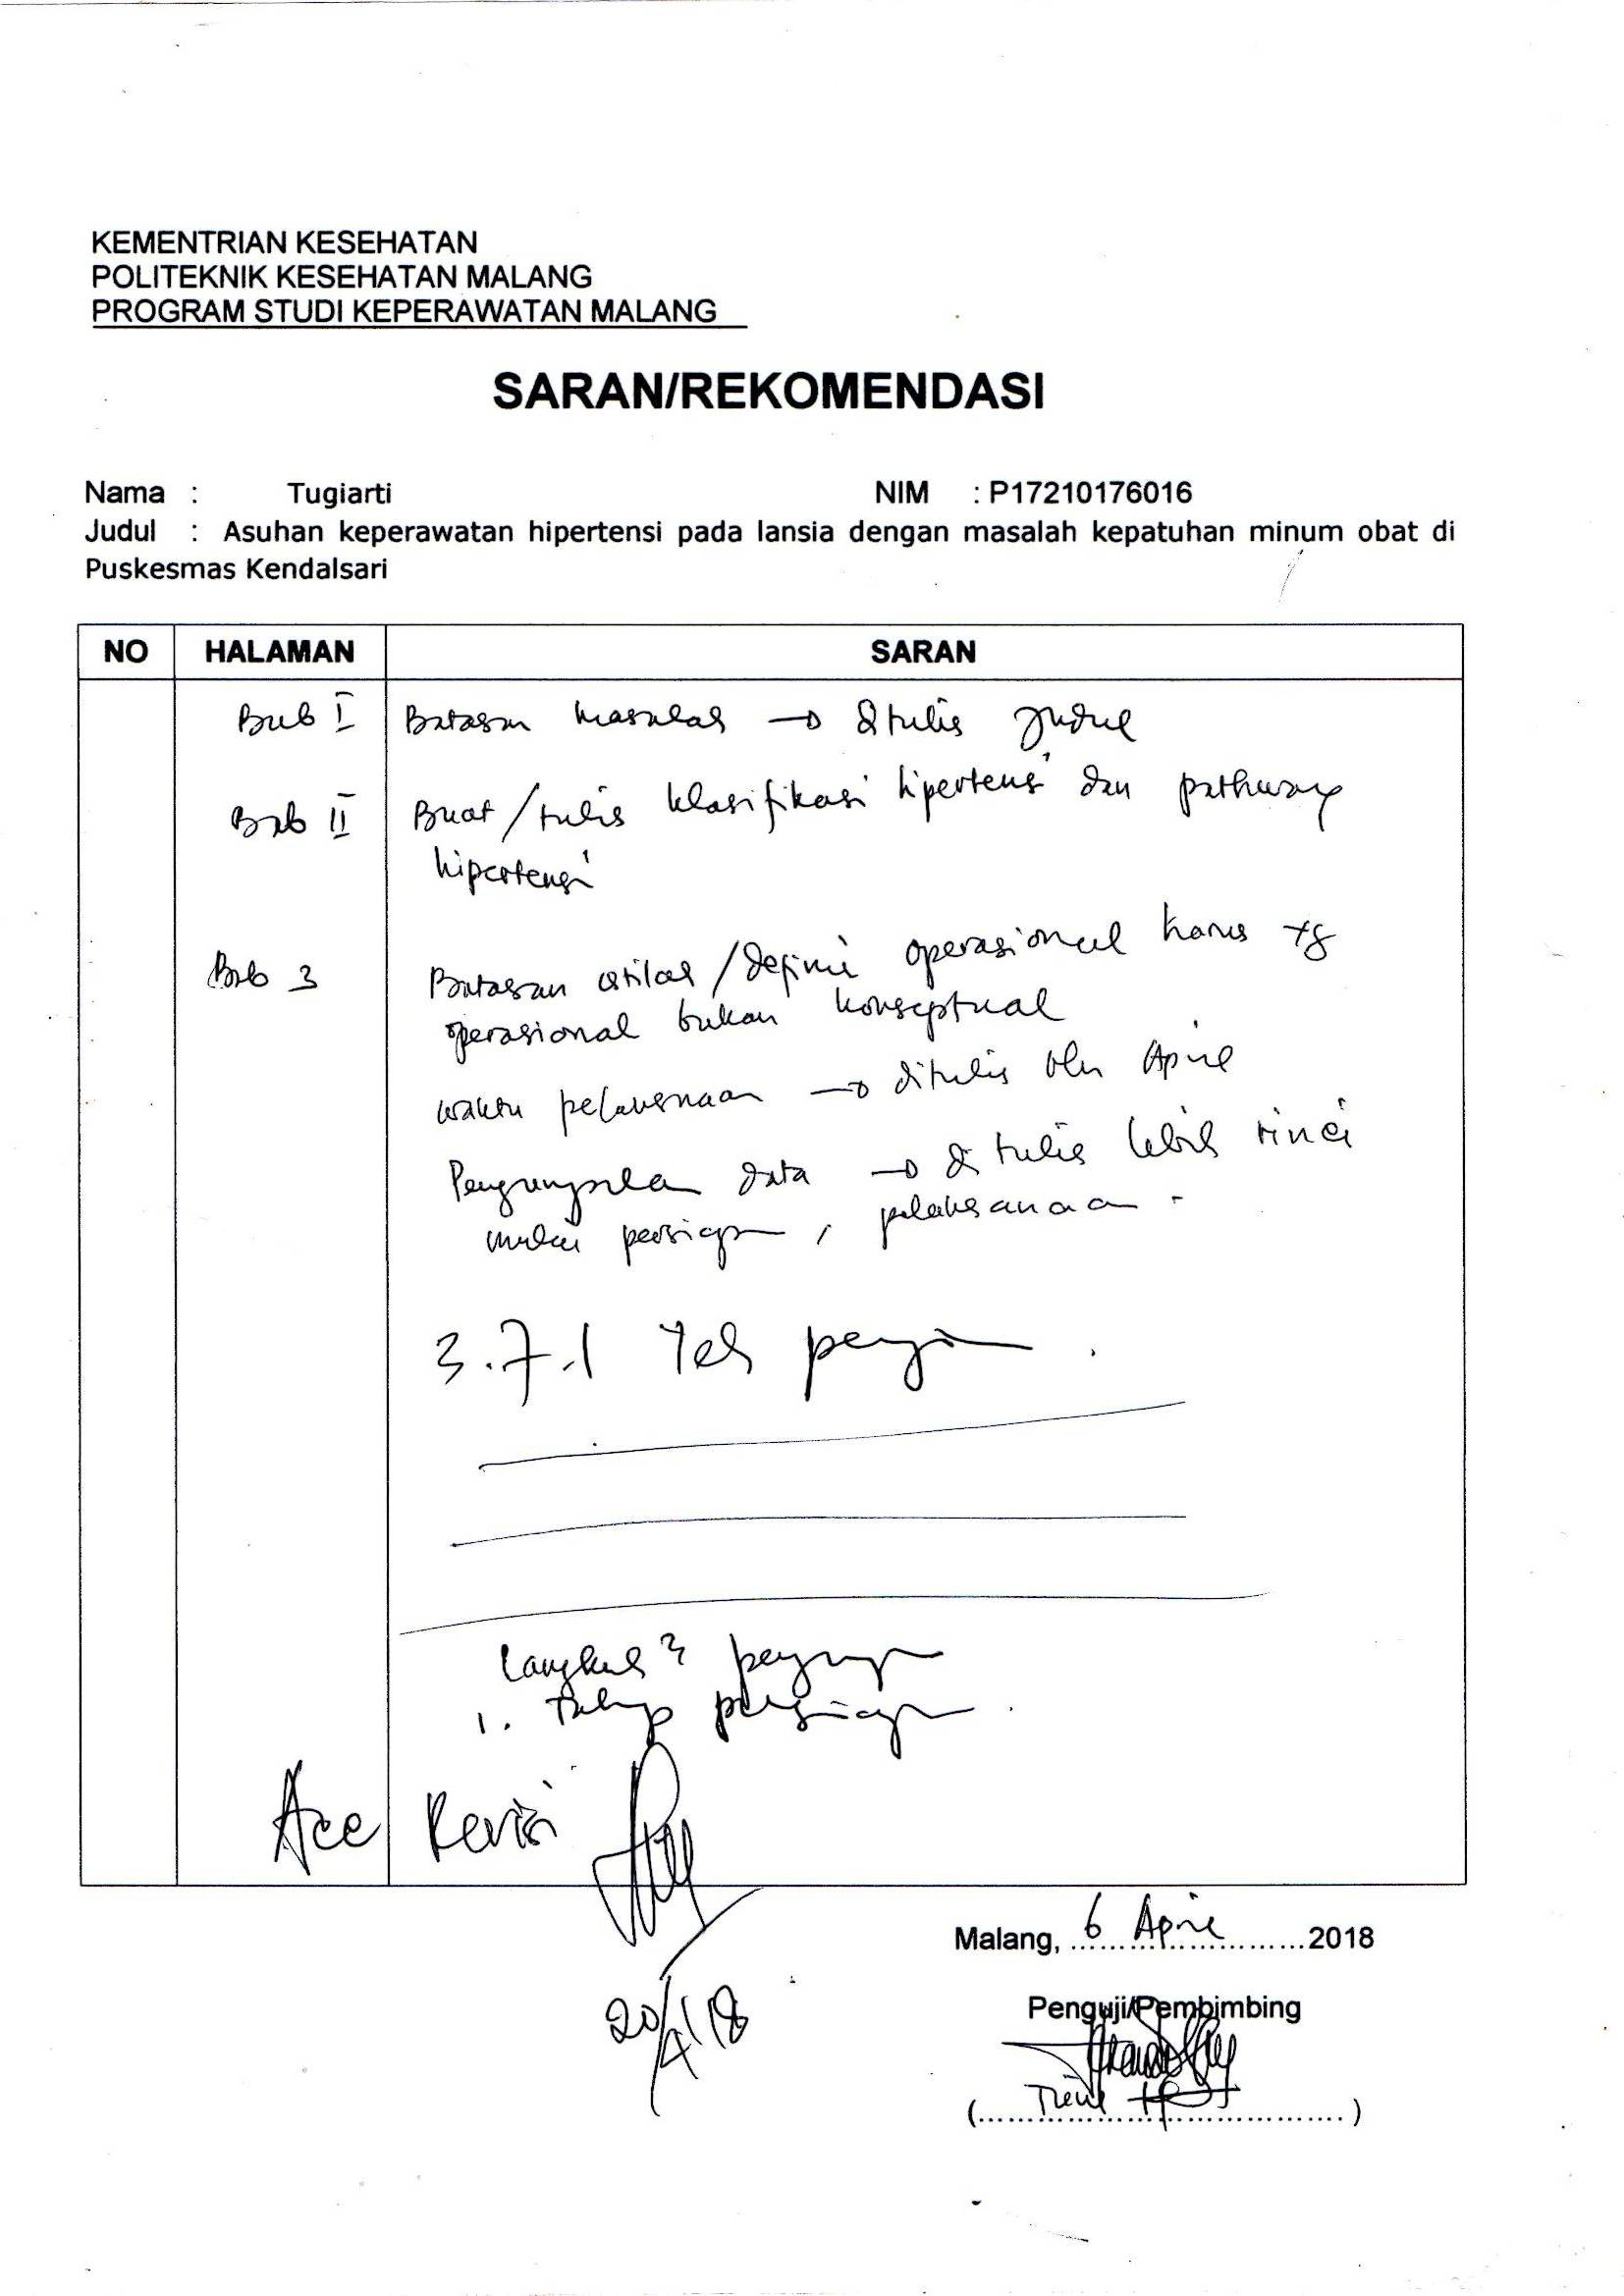 KEMENTRIAN KESEHATAN
POLITEKNIK KESEHATAN MALANG
PROGRAM STUDI KEPERAWATAN MALANG
SARAN/REKOMENDASI
Nama : Tugiarti NIM : P17210176016
Judul : Asuhan keperawatan hipertensi pada lansia dengan masalah kepatuhan minum obat di
Puskesmas Kendalsari
NO HALAMAN SARAN
Bab I Batasan masalah → ditulis judul
Bab II Buat/tulis klasifikasi hipertensi dan pathway
hipertensi
Bab 3 Batasan istilah/definisi operasional harus yg
operasional bukan konseptual
waktu pelaksanaan → ditulis bln April
Pengumpulan data → ditulis lebih rinci
mulai persiapan, pelaksanaan.
3.7.1
Langkah2
1. Tahap persiapan.
Acc Revisi
Malang, 6 April 2018
20/4/18
Penguji/Pembimbing
(..............................)